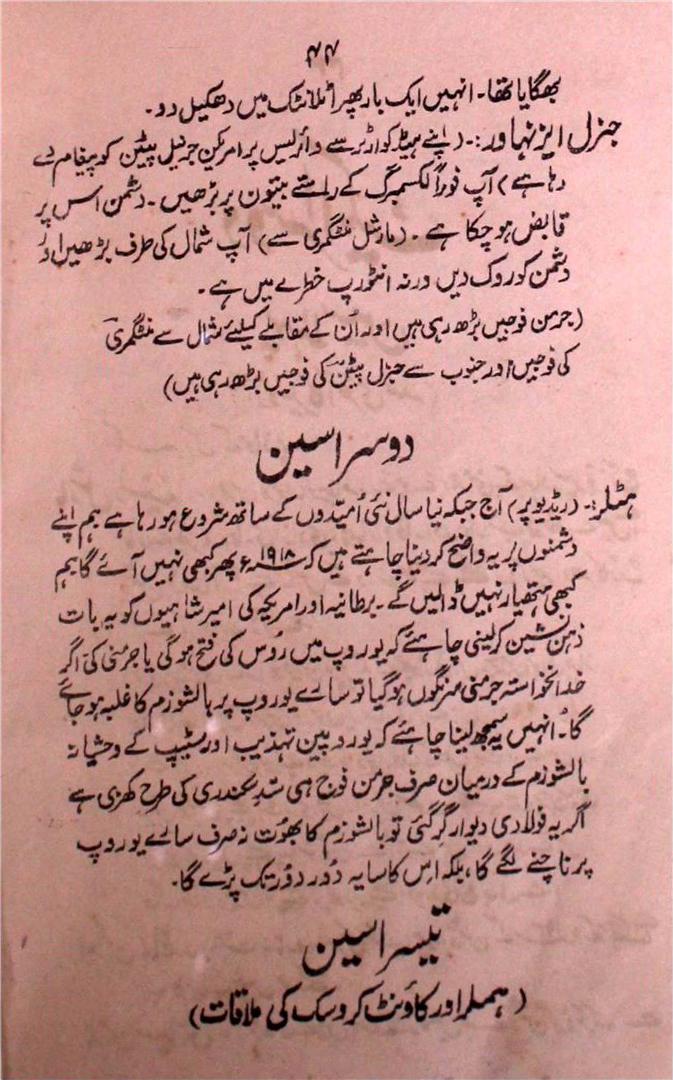 ۴۴
بھگایا تھا۔ انہیں ایک بار پھر اٹلانٹک میں دھکیل دو۔
جنرل ایزنہاور:۔ (اپنے ہیڈ کوارٹر سے وائرلیس پر امریکن جرنیل پیٹن کو پیغام دے
رہا ہے) آپ فوراً لکسمبرگ کے راستے بیتون پر بڑھیں۔ دشمن اس پر
قابض ہو چکا ہے۔ (مارشل منٹگمری سے) آپ شمال کی طرف بڑھیں اور
دشمن کو روک دیں ورنہ انٹورپ خطرے میں ہے۔
(جرمن فوجیں بڑھ رہی ہیں اور اُن کے مقابلے کیلئے شمال سے منٹگمری
کی فوجیں اور جنوب سے جنرل پیٹن کی فوجیں بڑھ رہی ہیں)
دوسرا سین
ہٹلر:۔ (ریڈیو پر) آج جبکہ نیا سال نئی اُمیدوں کے ساتھ شروع ہو رہا ہے ہم اپنے
دشمنوں پر یہ واضح کر دینا چاہتے ہیں کہ ۱۹۱۸ء پھر کبھی نہیں آئے گا ہم
کبھی ہتھیار نہیں ڈالیں گے۔ برطانیہ اور امریکہ کی امیر شاہیوں کو یہ بات
ذہن نشین کر لینی چاہئے کہ یوروپ میں رُوس کی فتح ہوگی یا جرمنی کی اگر
خدانخواستہ جرمنی سرنگوں ہو گیا تو سارے یوروپ پر بالشوزم کا غلبہ ہو جائے
گا۔ اُنہیں یہ سمجھ لینا چاہئے کہ یوروپین تہذیب اور سٹیپ کے وحشیانہ
بالشوزم کے درمیان صرف جرمن فوج ہی سدِ سکندری کی طرح کھڑی ہے
اگر یہ فولادی دیوار گر گئی تو بالشوزم کا بھُوت نہ صرف سارے یوروپ
پر ناچنے لگے گا، بلکہ اِس کا سایہ دُور دُور تک پڑے گا۔
تیسرا سین
(ہملر اور کاؤنٹ کروسک کی ملاقات)